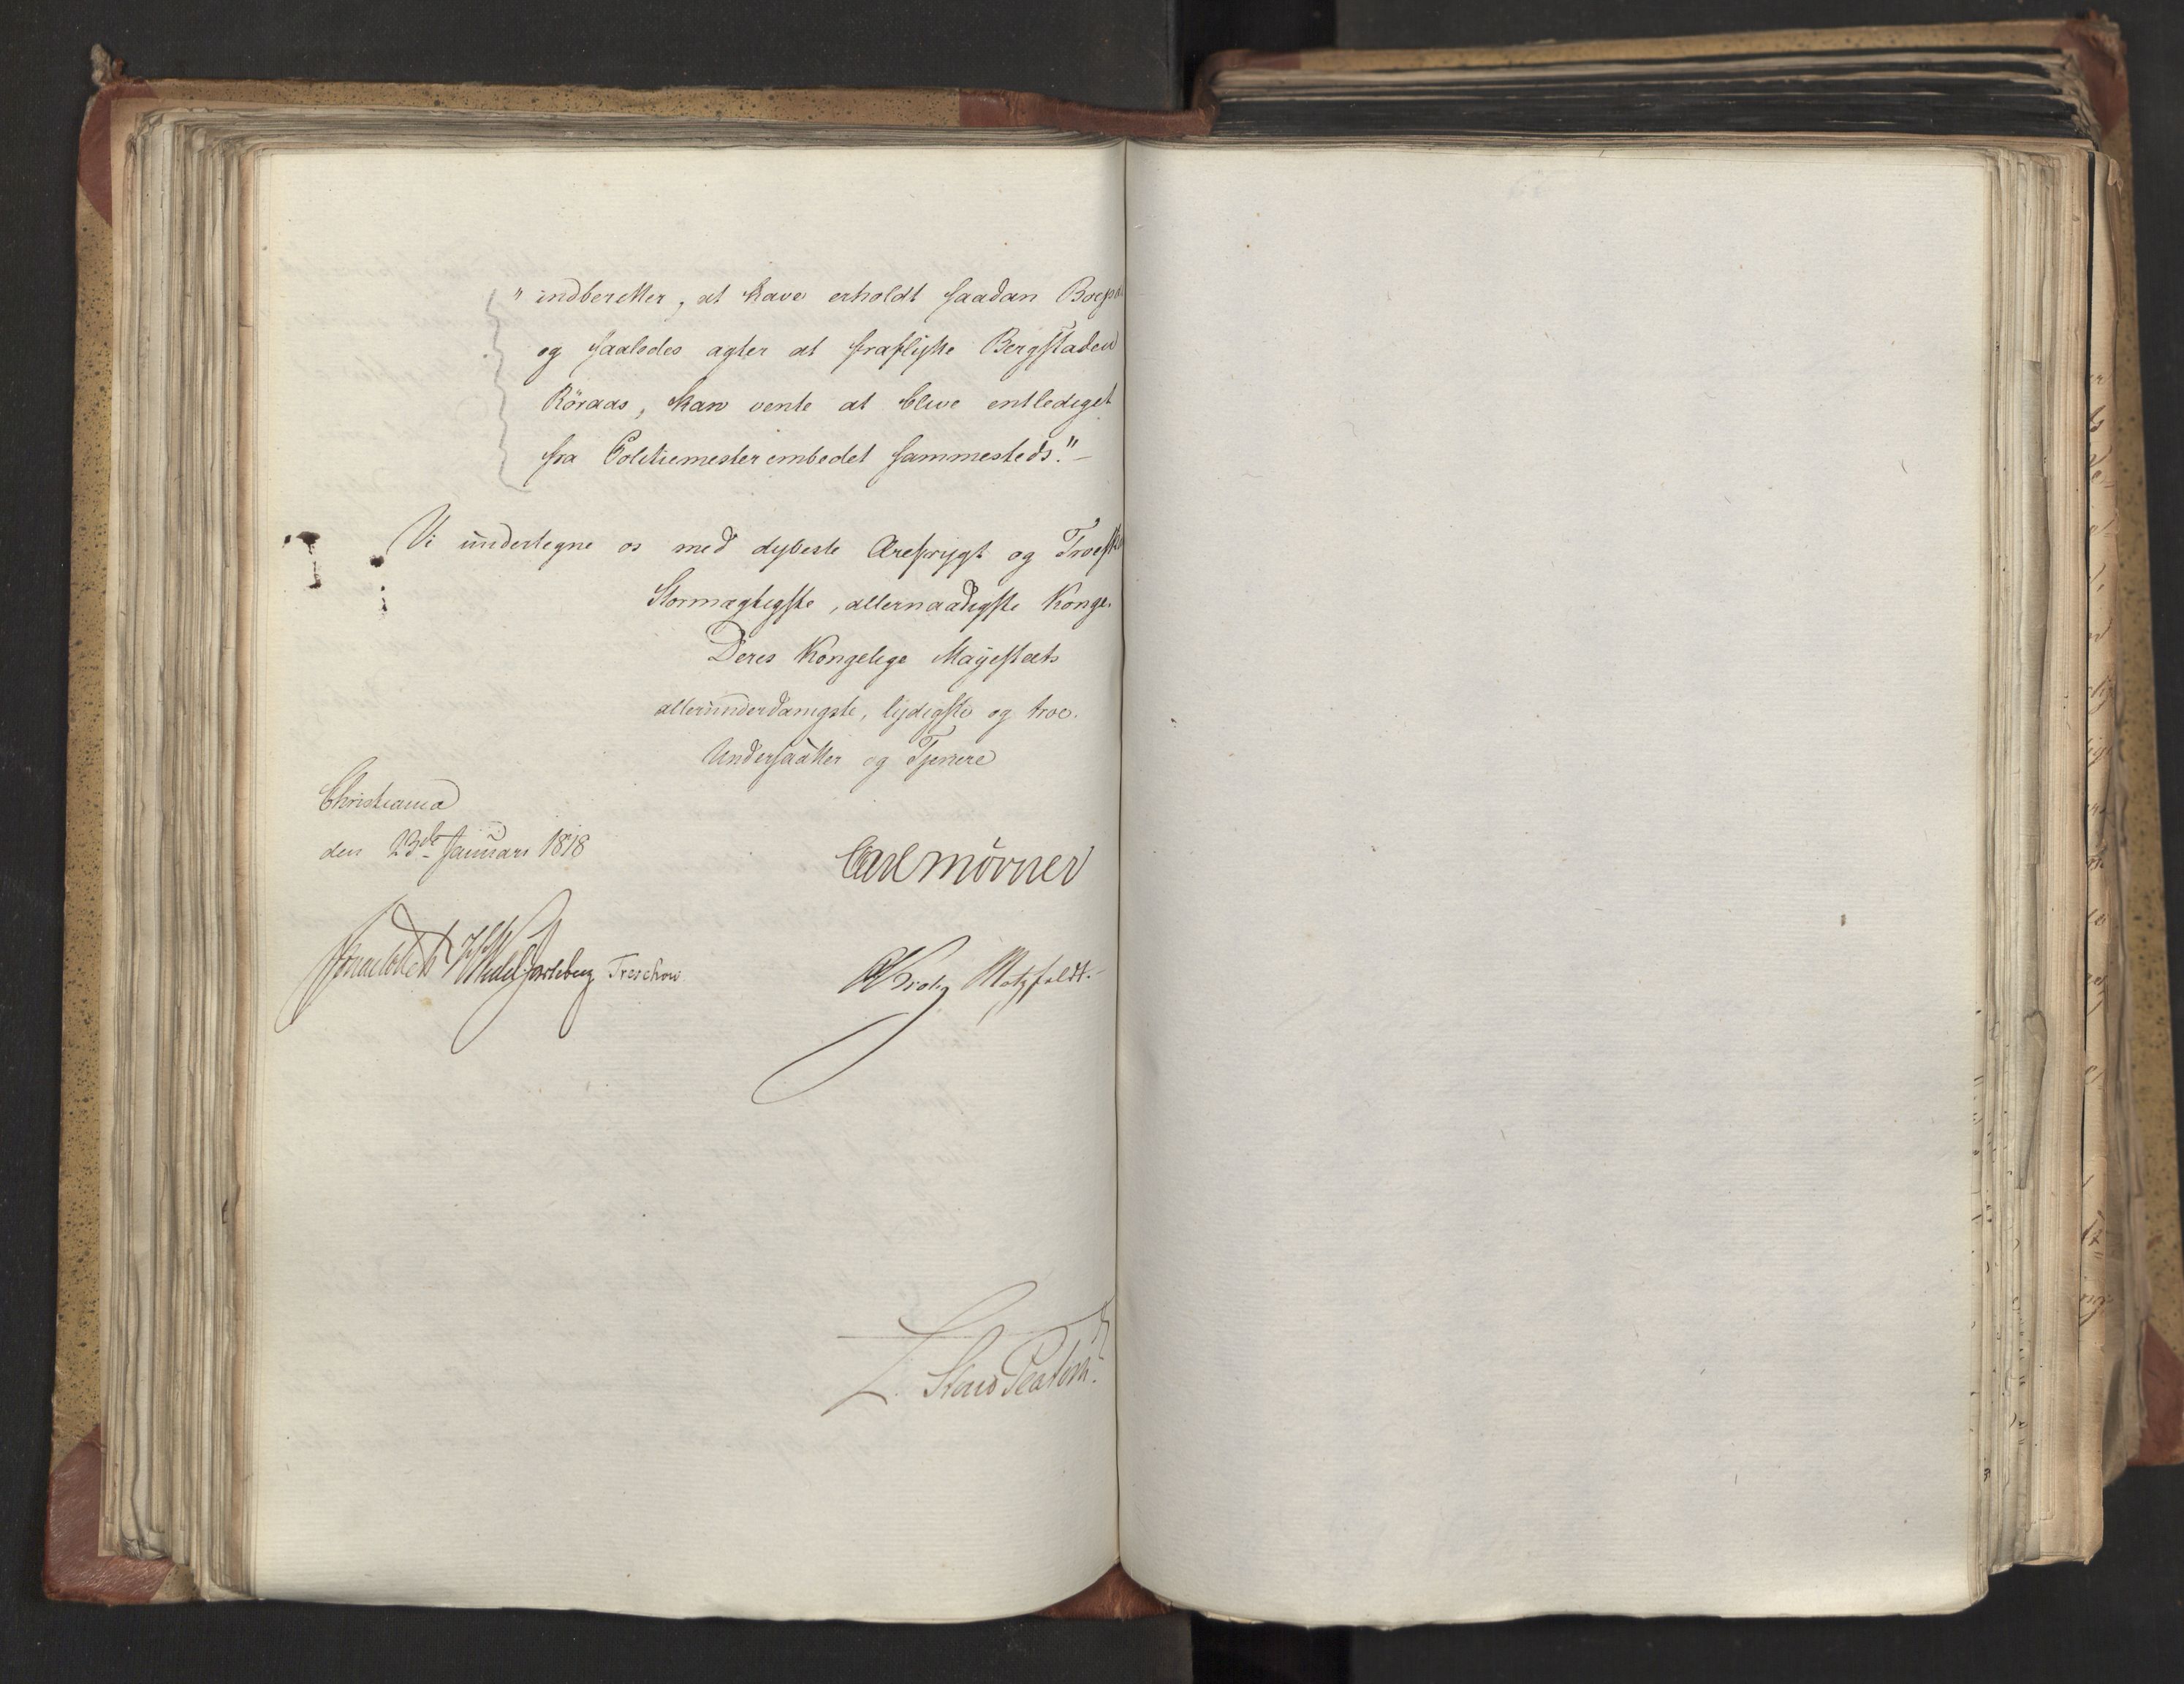 " indberetter, at have erholdt saadan
og saaledes agter at fraflytte Bergstaden
Röraas, kan vente at blive entlediget
fra Politiemesterembedet sammesteds." –
Vi undertegne os med dybeste Ærefrygt og
Stormægtigste, allernaadigste Konge.
Deres Kongelige Majestæts
allerunderdanigste, lydigste og troe.
Undersaatter og Tjenere
Christiania
den 23de Januari 1818
Carl Mörner
Sommelskeh HWedelJarlsberg Treschow
CKrohg Motzfeldt.
L. Stoud Platou.